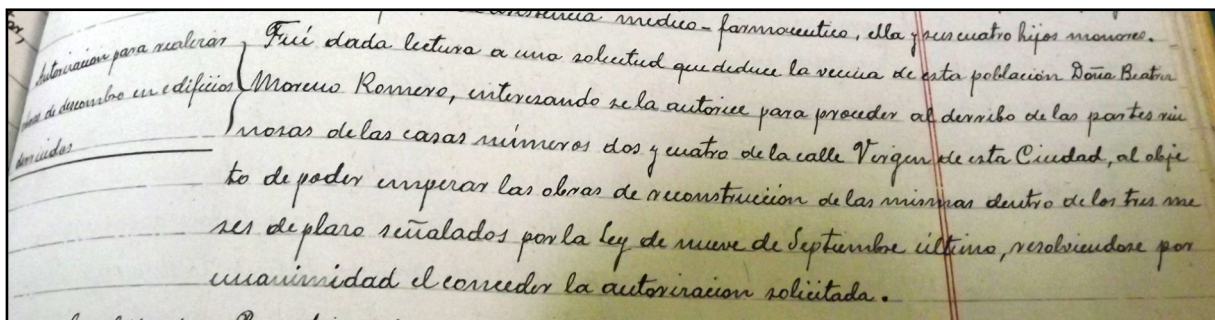 asistencia médico-farmaceutico, ella y sus cuatro hijos menores.
Autorización para realizar
obras de descombro en edificios
derruidos
Fué dada lectura a una solicitud que deduce la vecina de esta población Doña Beatriz
Moreno Romero, interesando se la autorice para proceder al derribo de las partes rui
nosas de las casas números dos y cuatro de la calle Virgen de esta Ciudad, al obje
to de poder empezar las obras de reconstrucción de las mismas dentro de los tres me
ses de plazo señalados por la Ley de nueve de Septiembre último, resolviendose por
unanimidad el conceder la autorización solicitada.